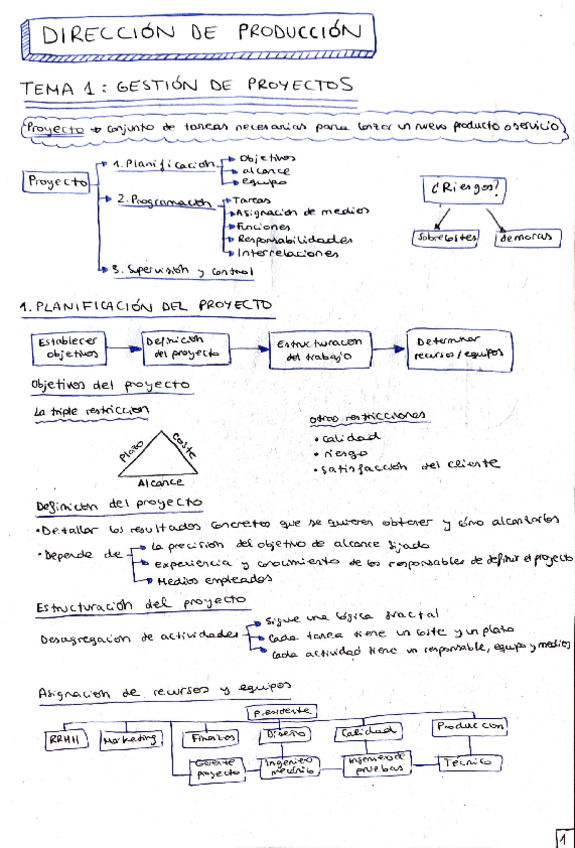 DIRECCIÓN DE PRODUCCIÓN
TEMA 1: GESTIÓN DE PROYECTOS
Proyecto → conjunto de tareas necesarias para lanzar un nuevo producto o servicio
Proyecto
1. Planificación
Objetivos
alcance
equipo
2. Programación
Tareas
Asignación de medios
Funciones
Responsabilidades
Interrelaciones
3. Supervisión y control
¿Riesgos?
Sobrecostes
demoras
1. PLANIFICACIÓN DEL PROYECTO
Establecer objetivos
Definición del proyecto
Estructuración del trabajo
Determinar recursos/equipos
Objetivos del proyecto
La triple restricción
Plazo
Coste
Alcance
otras restricciones
• calidad
• riesgo
• satisfacción del cliente
Definición del proyecto
• Detallar los resultados concretos que se quieren obtener y cómo alcanzarlos
• Depende de
la precisión del objetivo de alcance fijado
experiencia y conocimiento de los responsables de definir el proyecto
Medios empleados
Estructuración del proyecto
Desagregación de actividades
Sigue una lógica fractal
Cada tarea tiene un coste y un plazo
Cada actividad tiene un responsable, equipo y medios
Asignación de recursos y equipos
Presidente
RRHH
Marketing
Finanzas
Diseño
Calidad
Producción
Gerente proyecto
Ingeniero mecánico
Ingeniero de pruebas
Técnico
1